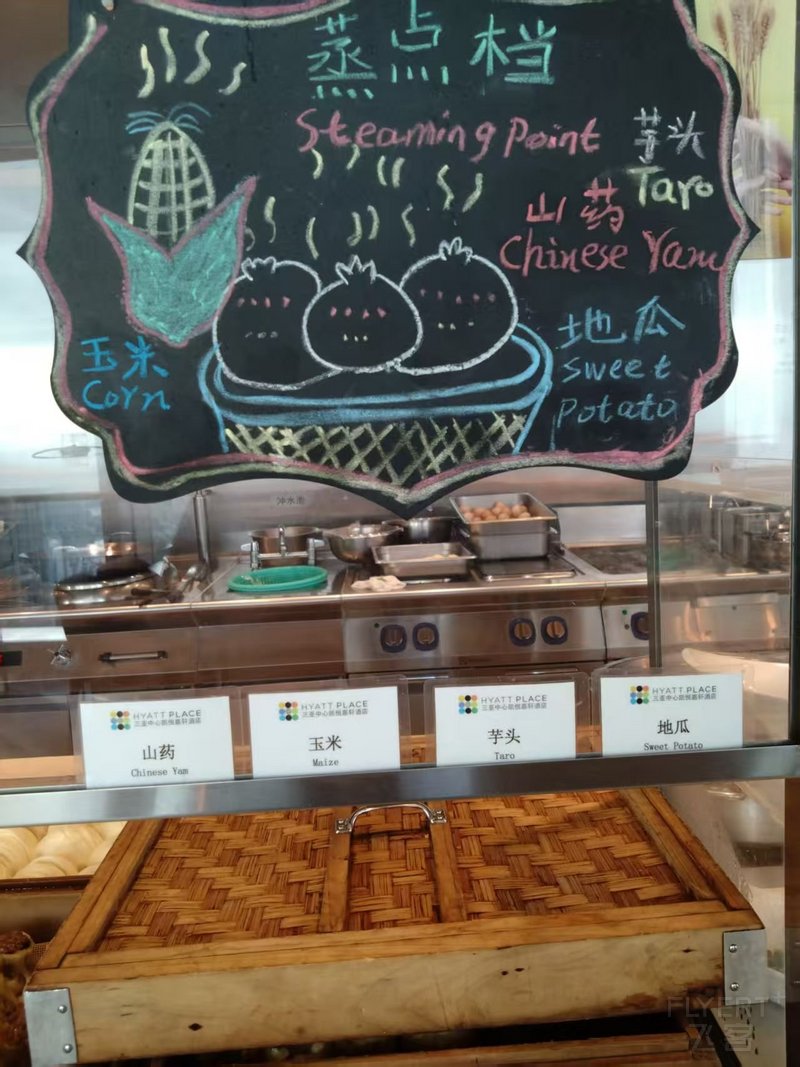 蒸点档
Steaming Point
芋头
Taro
山药
Chinese Yam
地瓜
sweet
potato
玉米
Corn
冲水池
HYATT PLACE
三亚中心凯悦嘉轩酒店
山药
Chinese Yam
HYATT PLACE
三亚中心凯悦嘉轩酒店
玉米
Maize
HYATT PLACE
三亚中心凯悦嘉轩酒店
芋头
Taro
HYATT PLACE
三亚中心凯悦嘉轩酒店
地瓜
Sweet Potato
FLYERT
飞客